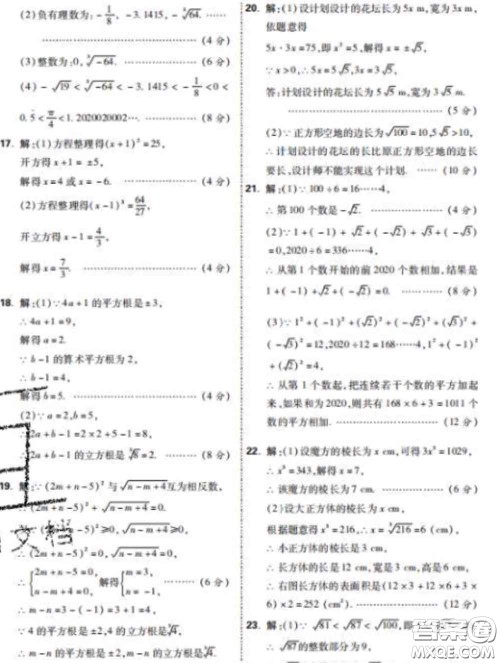 (2)负有理数为:-1/8, -3.1415, -∛64.
………… (4分)
(3)整数为:0, ∛-64. ………… (6分)
(4)-√19<∛-64<-3.1415<-1/8<0<
0.5<π/4<1.2020020002…. ………… (8分)
17. 解:(1)方程整理得(x+1)²=25,
开方得 x+1=±5,
解得 x=4 或 x=-6. ………… (4分)
(2)方程整理得(x-1)³=64/27,
开立方得 x-1=4/3,
解得 x=7/3. ………… (4分)
18. 解:(1)∵4a+1 的平方根是±3,
∴4a+1=9,
解得 a=2.
∵b-1 的算术平方根为 2,
∴b-1=4,
解得 b=5. ………… (4分)
(2)∵a=2,b=5,
∴2a+b-1=2×2+5-1=8,
∴2a+b-1 的立方根是∛8=2. ………… (8分)
19. 解:∵(2m+n-5)² 与√n-m+4互为相反数,
∴(2m+n-5)²+√n-m+4=0,
-5)²≥0,√n-m+4≥0,
∴(2m+n-5)²=0,√n-m+4=0,
∴{2m+n-5=0, n-m+4=0, 解得{m=3, n=-1. ………… (6分)
∴m-n=3-(-1)=4,
∵4 的平方根是±2,4 的立方根是∛4,
∴m-n 的平方根是±2,m-n 的立方根是∛4.
20. 解:(1)设计划设计的花坛长为 5x m,宽为 3x m,
依题意得
5x·3x=75,即 x²=5,解得 x=±√5,
∵x>0,∴5x=5√5,3x=3√5,
答:计划设计的花坛长为 5√5 m,宽为 3√5 m.
………… (5分)
(2)∵正方形空地的边长为√100=10,5√5>10,
∴计划设计的花坛的长比原正方形空地的边长
要长,设计师不能实现这个计划. …… (10分)
21. 解:(1)∵100÷6=16……4,
∴第 100 个数是-√2. ………… (3分)
(2)∵1+(-1)+√2+(-√2)+√3+(-√3)
=0,2020÷6=336……4,
∴从第 1 个数开始的前 2020 个数相加,结果是
1+(-1)+√2+(-√2)=0. ………… (8分)
(3)∵1²+(-1)²+(√2)²+(-√2)²+(√3)²+
(-√3)²=12,2020÷12=168……4,而 1²+
(-1)²+(√2)²=4,
∴从第 1 个数起,把连续若干个数的平方加起
来,如果和为 2020,则共有 168×6+3=1011 个
数的平方相加. ………… (12分)
22. 解:(1)设魔方的棱长为 x cm,可得 3x³=1029,
∴x³=343,解得 x=7.
∴该魔方的棱长为 7 cm. ………… (6分)
(2)设大正方体的棱长为 x cm,
根据题意得 x³=216,∴x=∛216=6 (cm),
∴小正方体的棱长是 3 cm,
∴长方体的长是 12 cm,宽是 3 cm,高是 6 cm,
∴右图长方体的表面积是(12×3+12×6+3×
6)×2=252 (cm²). ………… (12分)
23. 解:(1)∵√81<√87<√100,即
∴√87的整数部分为 9,
文档
答案圈
MXQE.COM